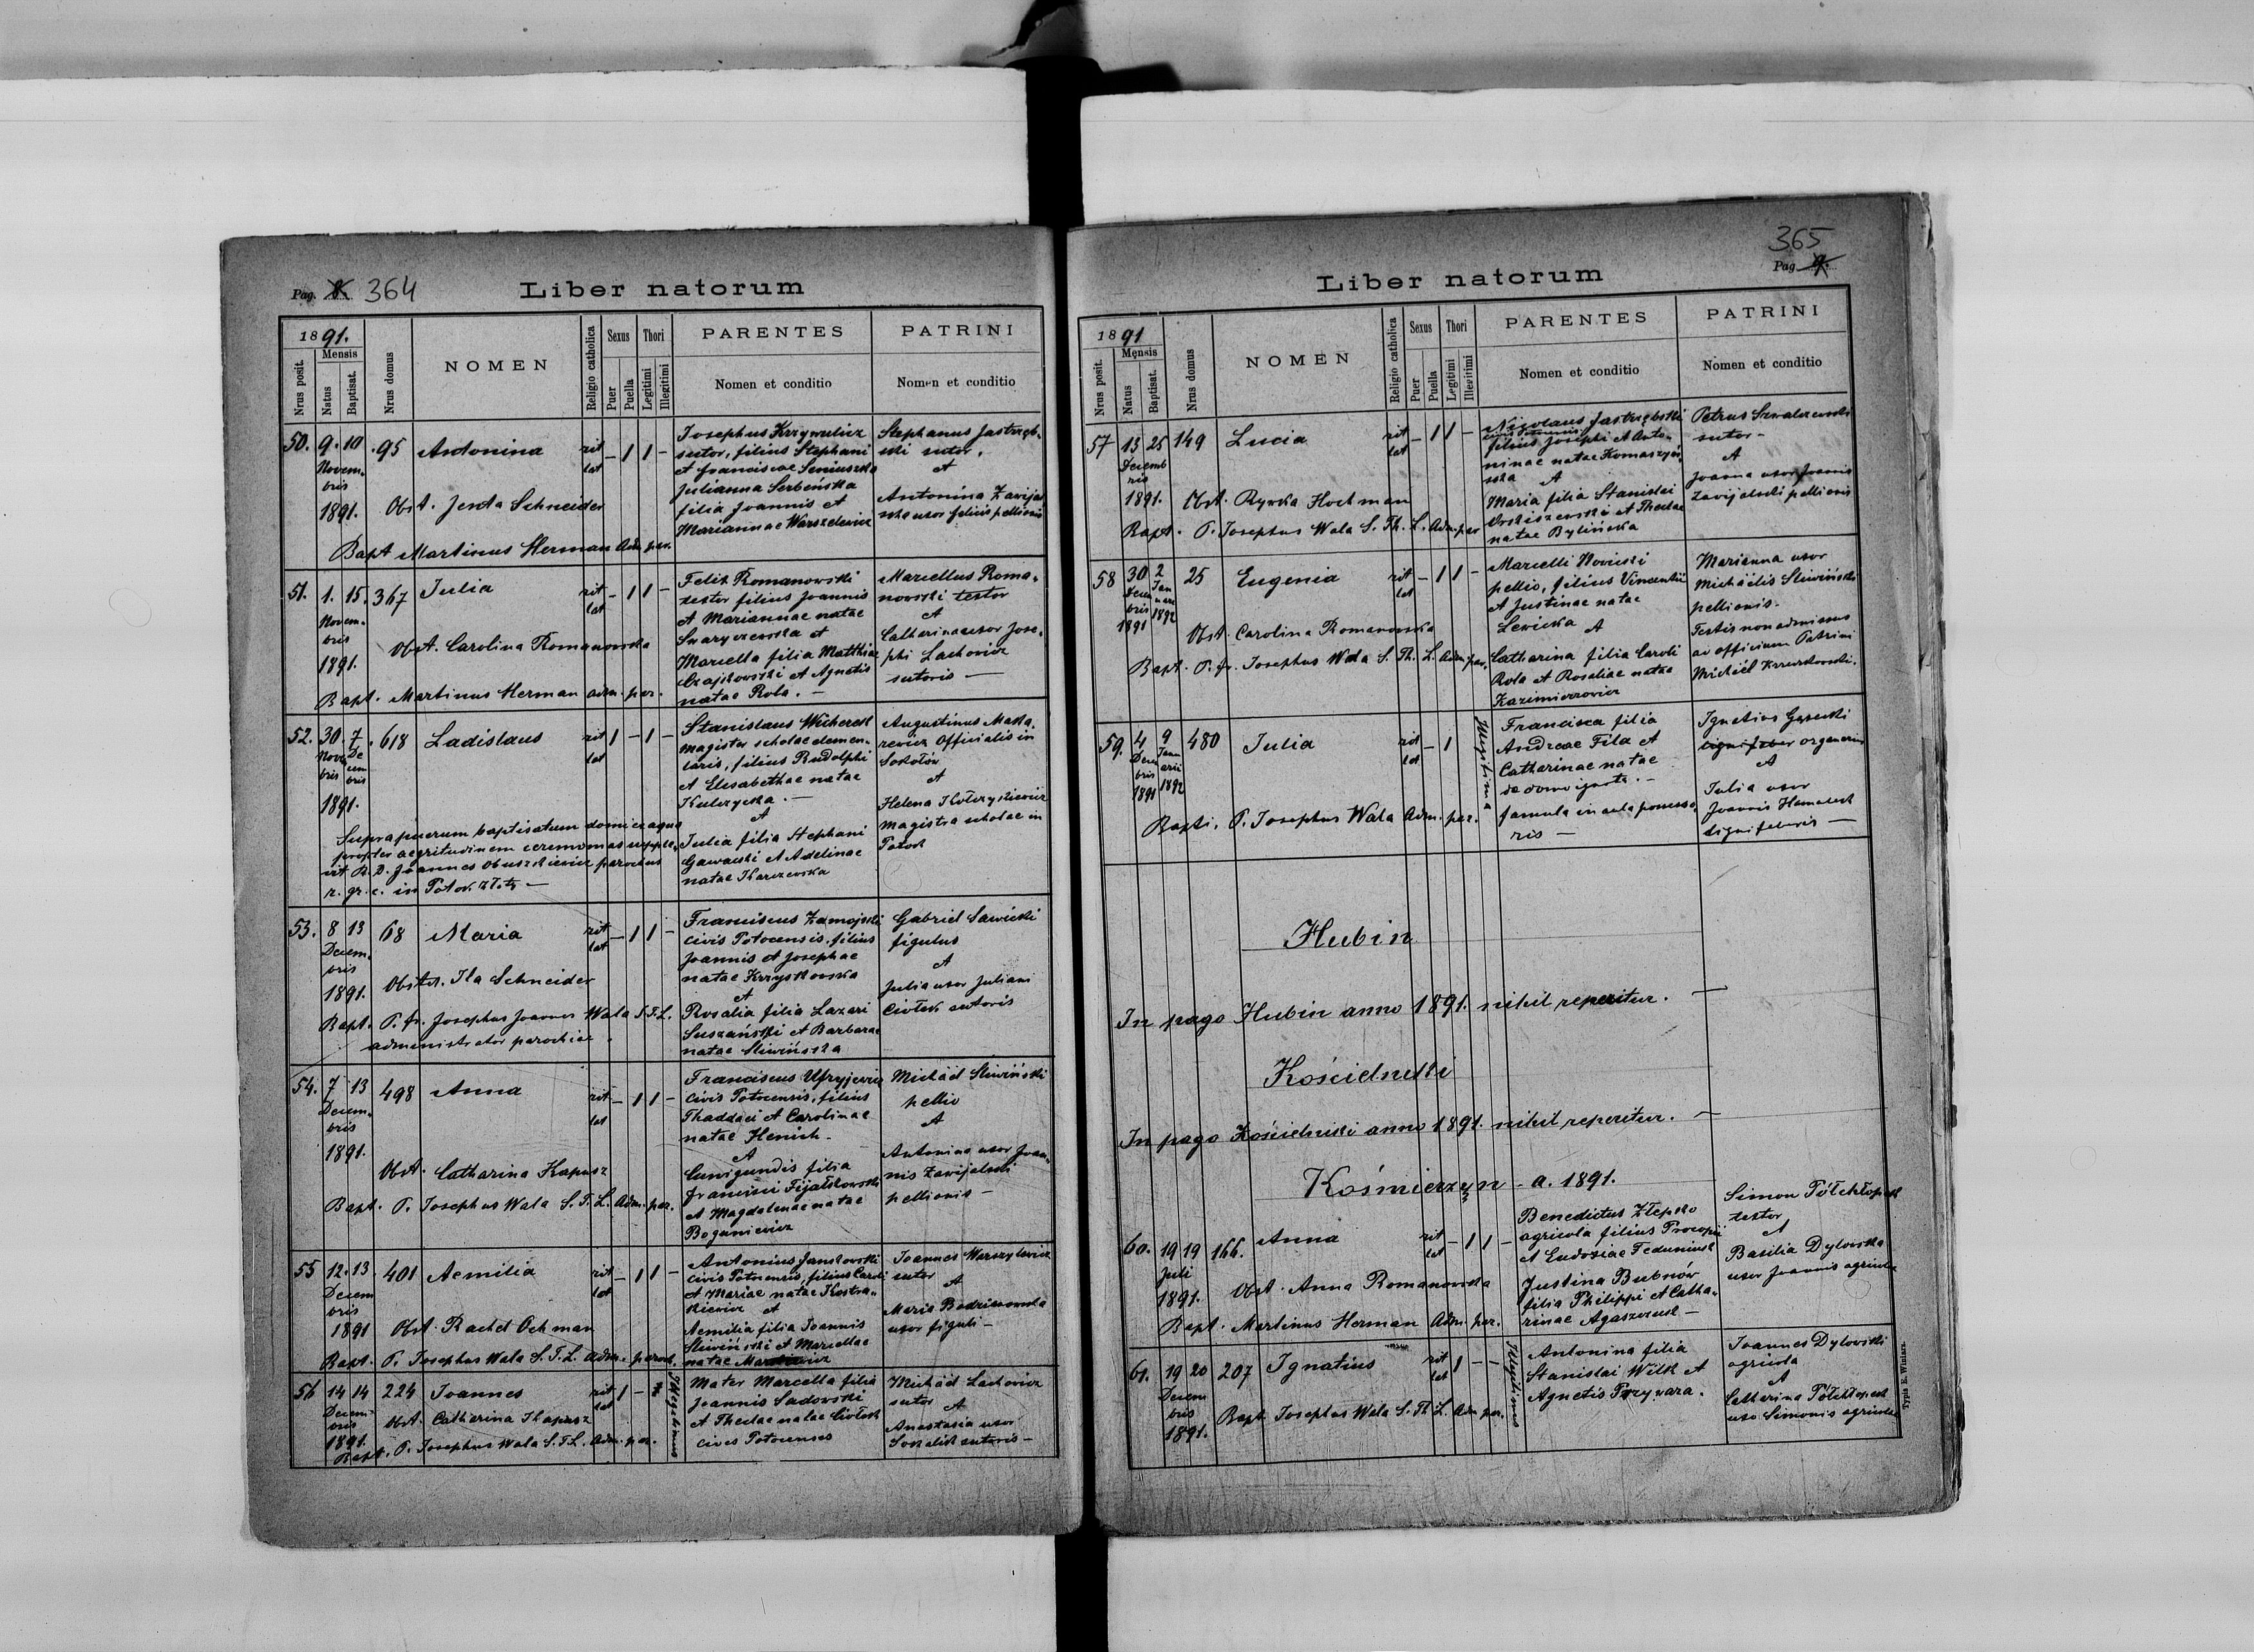 Pag. 8. 364
Liber natorum
1891.
Nrus posit.
Mensis
Natus
Baptisat.
Nrus domus
NOMEN
Religio catholica
Sexus
Puer
Puella
Thori
Legitimi
Illegitimi
PARENTES
Nomen et conditio
PATRINI
Nomen et conditio
50. 9. 10 95 Antonina rit lat – 1 1 –
Novem-
bris
1891. Obst. Jenta Schneider
Bapt Martinus Herman Adm. par.
Josephus Krzywulicz
sutor, filius Stephani
et Franciscae
Julianna Serbeńska
filia Joannis et
Mariannae Warszelewicz
Stephanus Jastrzęb-
ski sutor.
et
Antonina Zawijal
ska uxor felicis pellionis
51. 1. 15. 367 Julia rit lat – 1 1 –
Novem-
bris
1891. Obst. Carolina Romanowska
Bapt. Martinus Herman adm. par.
Felix Romanowski
textor filius Joannis
et Mariannae natae
et
Marcella filia Matthiae
Czajkowski et Agnetis
natae Rola. –
Marcellus Roma-
nowski textor
et
Catherina uxor Jose-
phi Lachowicz
sutoris –
52. 30. 7. 618 Ladislaus rit lat 1 – 1 –
Novem De
bris cem
bris
1891.
Supra puerum baptisatum domi ex aqua
propter aegritudinem ceremonias supple-
vit R. D. Joannes Obuszkiewicz parochus
r. gr. c. in Potok Złoty –
Stanislaus Wicherek
magister scholae elemen-
taris, filius Rudolphi
et Elisabethae natae
Kulczycka. –
et
Julia filia Stephani
Gawacki et Adelinae
natae Karczewska
Augustinus Maka-
rewicz Officialis in
Sokołów
et
Helena
Magistra scholae in
Potok
53. 8 13 68 Maria rit lat – 1 1 –
Decem-
bris
1891. Obstet. Ita Schneider
Bapt. P. fr. Josephus Joannes Wala S.T.L.
administrator parochiae.
Franciscus Zamojski
civis Potocensis, filius
Joannis et Josephae
natae Krzyskowska
et
Rosalia filia Lazari
Suszański et Barbarae
natae Sliwińska
Gabriel Sawicki
figulus
et
Julia uxor Juliani
Ciołek sutoris
54. 7 13 498 Anna rit lat – 1 1 –
Decem-
bris
1891.
Obst. Catharina Kapusz
Bapt. P. Josephus Wala S.T.L. Adm. par.
Franciscus
civis Potocensis, filius
Thaddaei et Carolinae
natae Henich.
et
Cunigundis filia
Francisci Fijałkowski
et Magdalenae natae
Boguniewicz
Michäel Sliwiński
pellio
et
Antonina uxor Joan-
nis Zawijalski
pellionis –
55 12. 13. 401 Aemilia rit lat – 1 1 –
Decem
bris
1891 Obst. Rachel Ochman
Bapt. P. Josephus Wala S.T.L. Adm. paroch.
Antonius Jankowski
civis Potocensis, filius Caroli
et Mariae natae Kostra-
kiewicz et
Aemilia filia Joannis
Sliwiński et Marcellae
natae
Joannes Warszylewicz
sutor
et
Maria
uxor figuli –
56 14 14 224 Joannes rit lat 1 – Illegitimus
Decem-
bris
1891. Obst. Catharina Kapusz
Bapt. P. Josephus Wala S.T.L. Adm. par.
Mater Marcella filia
Joannis Sadowski
et Theclae natae Ciołek
cives Potocenses
Michäel Lachowicz
sutor
et
Anastasia uxor
sutoris –
365
Pag. 9.
Liber natorum
1891
Nrus posit.
Mensis
Natus
Baptisat.
Nrus domus
NOMEN
Religio catholica
Sexus
Puer
Puella
Thori
Legitimi
Illegitimi
PARENTES
Nomen et conditio
PATRINI
Nomen et conditio
57 13 25 149 Lucia rit lat – 1 1 –
Decemb
ris
1891. Obst. Rywka Hochman
Bapt. P. Josephus Wala S. Th. L. Adm. par
Nicolaus Jastrzębski
civis Potocensis
filius Josephi et Anto-
ninae natae Tomaszyń
ska et
Maria filia Stanislai
et Theclae
natae Bylińska
Petrus
sutor –
et
Joanna uxor Joannis
Zawijalski pellionis
58 30 2 25 Eugenia rit lat – 1 1 –
Decem Jan
bris uarii
1891 1892
Obst. Carolina Romanowska
Bapt. P. fr. Josephus Wala S. Th. L. Adm. par.
Marcelli Nowicki
pellio, filius Vincentii
et Justinae natae
Lewicka
et
Catharina filia Caroli
Rola et Rosaliae natae
Kazimierzowicz
Marianna uxor
Michäelis Sliwiński
pellionis.
Testis non admissus
ad officium Patrini
Michäel
59. 4 9 480 Julia rit lat – 1 Illegitima
Decem Janu
bris arii
1891 1892
Bapti. P. Josephus Wala Adm. par.
Francisca filia
Andreae Fila et
Catharinae natae
de domo ignota. –
famula in aula possesso-
ris –
Ignatius Gąsecki
lignifaber organarius
et
Julia uxor
Joannis
lignifabris –
Hubin
In pago Hubin anno 1891. nihil reperitur. –
Kościelniki
In pago Kościelniki anno 1891. nihil reperitur. –
Kośmierzyn – a. 1891.
60. 19 19 166. Anna rit lat – 1 1 –
Juli
1891. Obst. Anna Romanowska
Bapt. Martinus Herman Adm. par.
Benedictus Złepko
agricola filius Procopii
et Eudoxiae Feduniuk
Justina Bubnów
filia Philippi et Catha-
rinae Agaszczuk –
Simon Półchłopek
textor
et
Basilia Dylowska
uxor Joannis agricolae
61. 19 20 207 Ignatius rit lat 1 – – Illegitimus
Decem
bris
1891. Bapt. Josephus Wala S. Th. L. Adm. par.
Antonina filia
Stanislai Wilk et
Agnetis Przywara.
Joannes Dylowski
agricola
et
Catharina Półchłopek
uxo Simonis agricolae
Typis E. Winiarz.